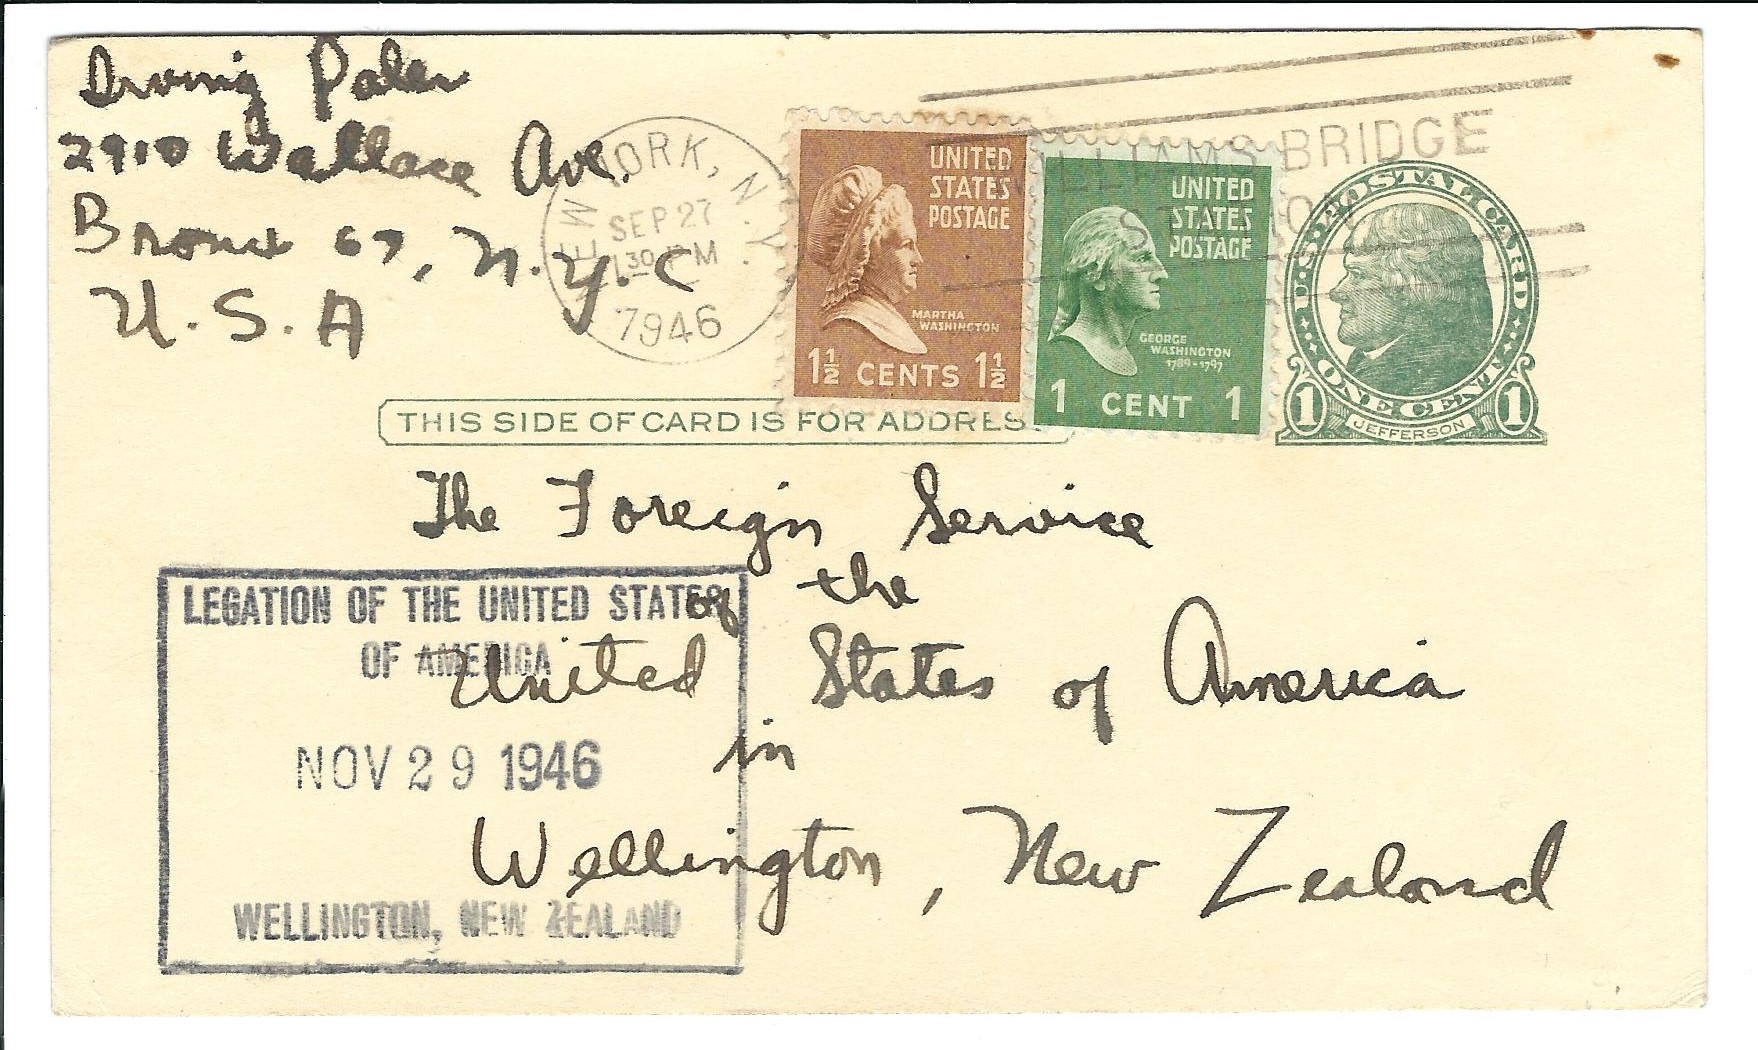 Irving Paler
2910 Wallace Ave.
Bronx 67, N.Y.C
U.S.A
NEW YORK, N.Y.
SEP 27
30 PM
1946
WILLIAMS BRIDGE
UNITED
STATES
POSTAGE
MARTHA
WASHINGTON
1½ CENTS 1½
UNITED
STATES
POSTAGE
GEORGE
WASHINGTON
1789-1797
1 CENT 1
U·S·POSTAL CARD
ONE CENT
1 JEFFERSON 1
THIS SIDE OF CARD IS FOR ADDRES
The Foreign Service
of the
United States of America
in
Wellington, New Zealand
LEGATION OF THE UNITED STATES
OF AMERICA
NOV 29 1946
WELLINGTON, NEW ZEALAND